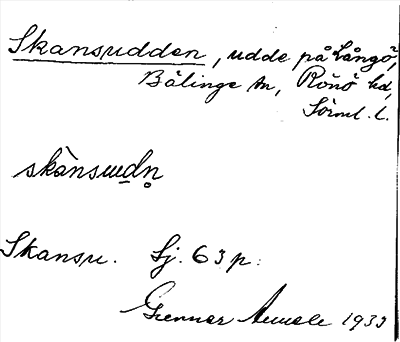 Skansudden, udde på Långö,
Bälinge sn, Rönö hd,
Sörml. l.
skànsuudn̥
Skansu. Sj. 63 p.
Gunnar 1933